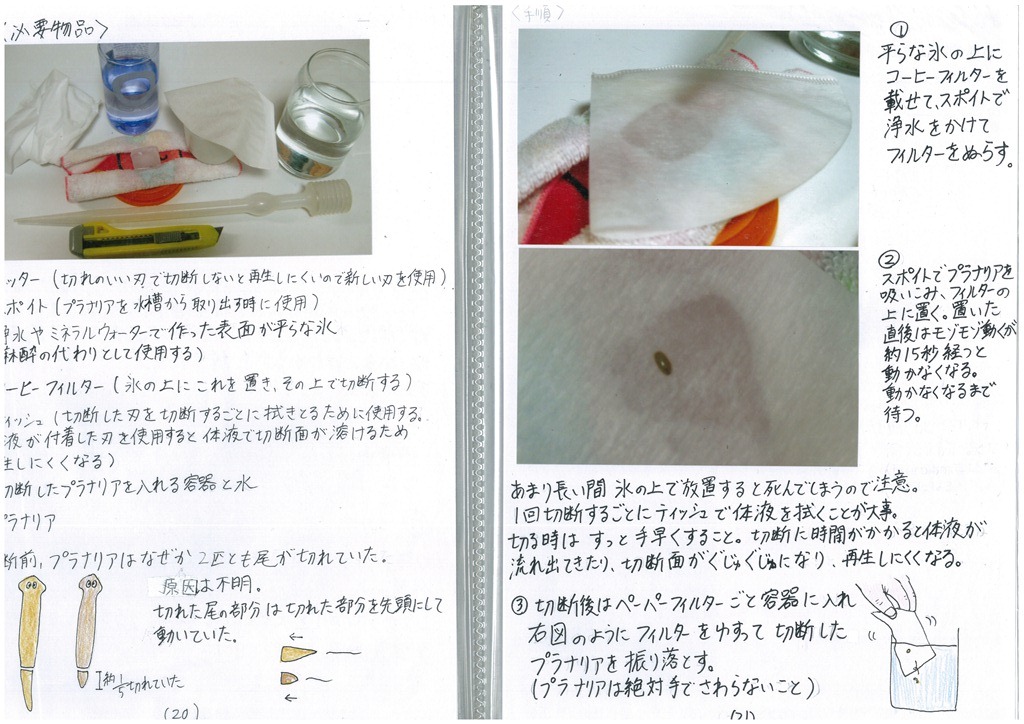 必要物品〉
ッター(切れのいい刃で切断しないと再生しにくいので新しい刃を使用)
ポイト(プラナリアを水槽から取り出す時に使用)
水やミネラルウォーターで作った表面が平らな氷
麻酔の代わりとして使用する)
ーヒーフィルター(氷の上にこれを置き、その上で切断する)
ィッシュ(切断した刃を切断するごとに拭きとるために使用する。
液が付着した刃を使用すると体液で切断面が溶けるため
生しにくくなる)
切断したプラナリアを入れる容器と水
プラナリア
断前、プラナリアはなぜか2匹とも尾が切れていた。
原因は不明。
切れた尾の部分は切れた部分を先頭にして
動いていた。
約1/5切れていた
(20)
〈手順〉
①
平らな氷の上に
コーヒーフィルターを
載せて、スポイトで
浄水をかけて
フィルターをぬらす。
②
スポイトでプラナリアを
吸いこみ、フィルターの
上に置く。置いた
直後はモゾモゾ動くが
約15秒経つと
動かなくなる。
動かなくなるまで
待つ。
あまり長い間氷の上で放置すると死んでしまうので注意。
1回切断するごとにティッシュで体液を拭くことが大事。
切る時はすっと手早くすること。切断に時間がかかると体液が
流れ出てきたり、切断面がぐじゅぐじゅになり、再生しにくくなる。
③ 切断後はペーパーフィルターごと容器に入れ
右図のようにフィルターをゆすって切断した
プラナリアを振り落とす。
(プラナリアは絶対手でさわらないこと)
(21)